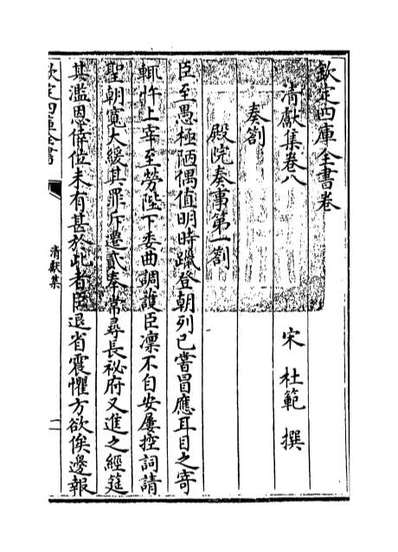 欽定四庫全書卷
清獻集卷八
宋 杜範 撰
奏劄
殿院奏事第一劄
臣至愚極陋偶值明時躐登朝列已嘗冒應耳目之寄
輒忤上宰至勞陛下委曲調護臣凜不自安屢控詞請
聖朝寛大緩其罪斥遷貳奉常尋長祕府又進之經筵
其濫恩倖位未有甚於此者臣退省震懼方欲俟邊報
欽定四庫全書
清獻集
一